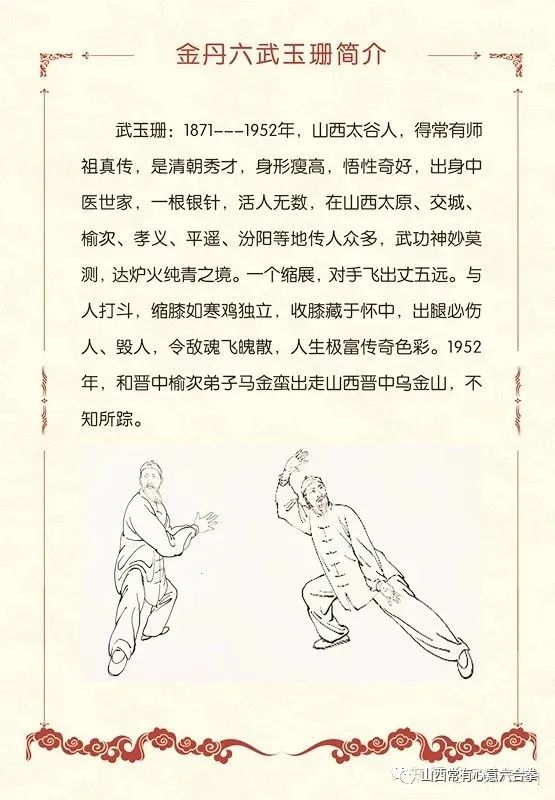 金丹六武玉珊简介
武玉珊：1871---1952年，山西太谷人，得常有师
祖真传，是清朝秀才，身形瘦高，悟性奇好，出身中
医世家，一根银针，活人无数，在山西太原、交城、
榆次、孝义、平遥、汾阳等地传人众多，武功神妙莫
测，达炉火纯青之境。一个缩展，对手飞出丈五远。与
人打斗，缩膝如寒鸡独立，收膝藏于怀中，出腿必伤
人、毁人，令敌魂飞魄散，人生极富传奇色彩。1952
年，和晋中榆次弟子马金蛮出走山西晋中乌金山，不
知所踪。
山西常有心意六合拳